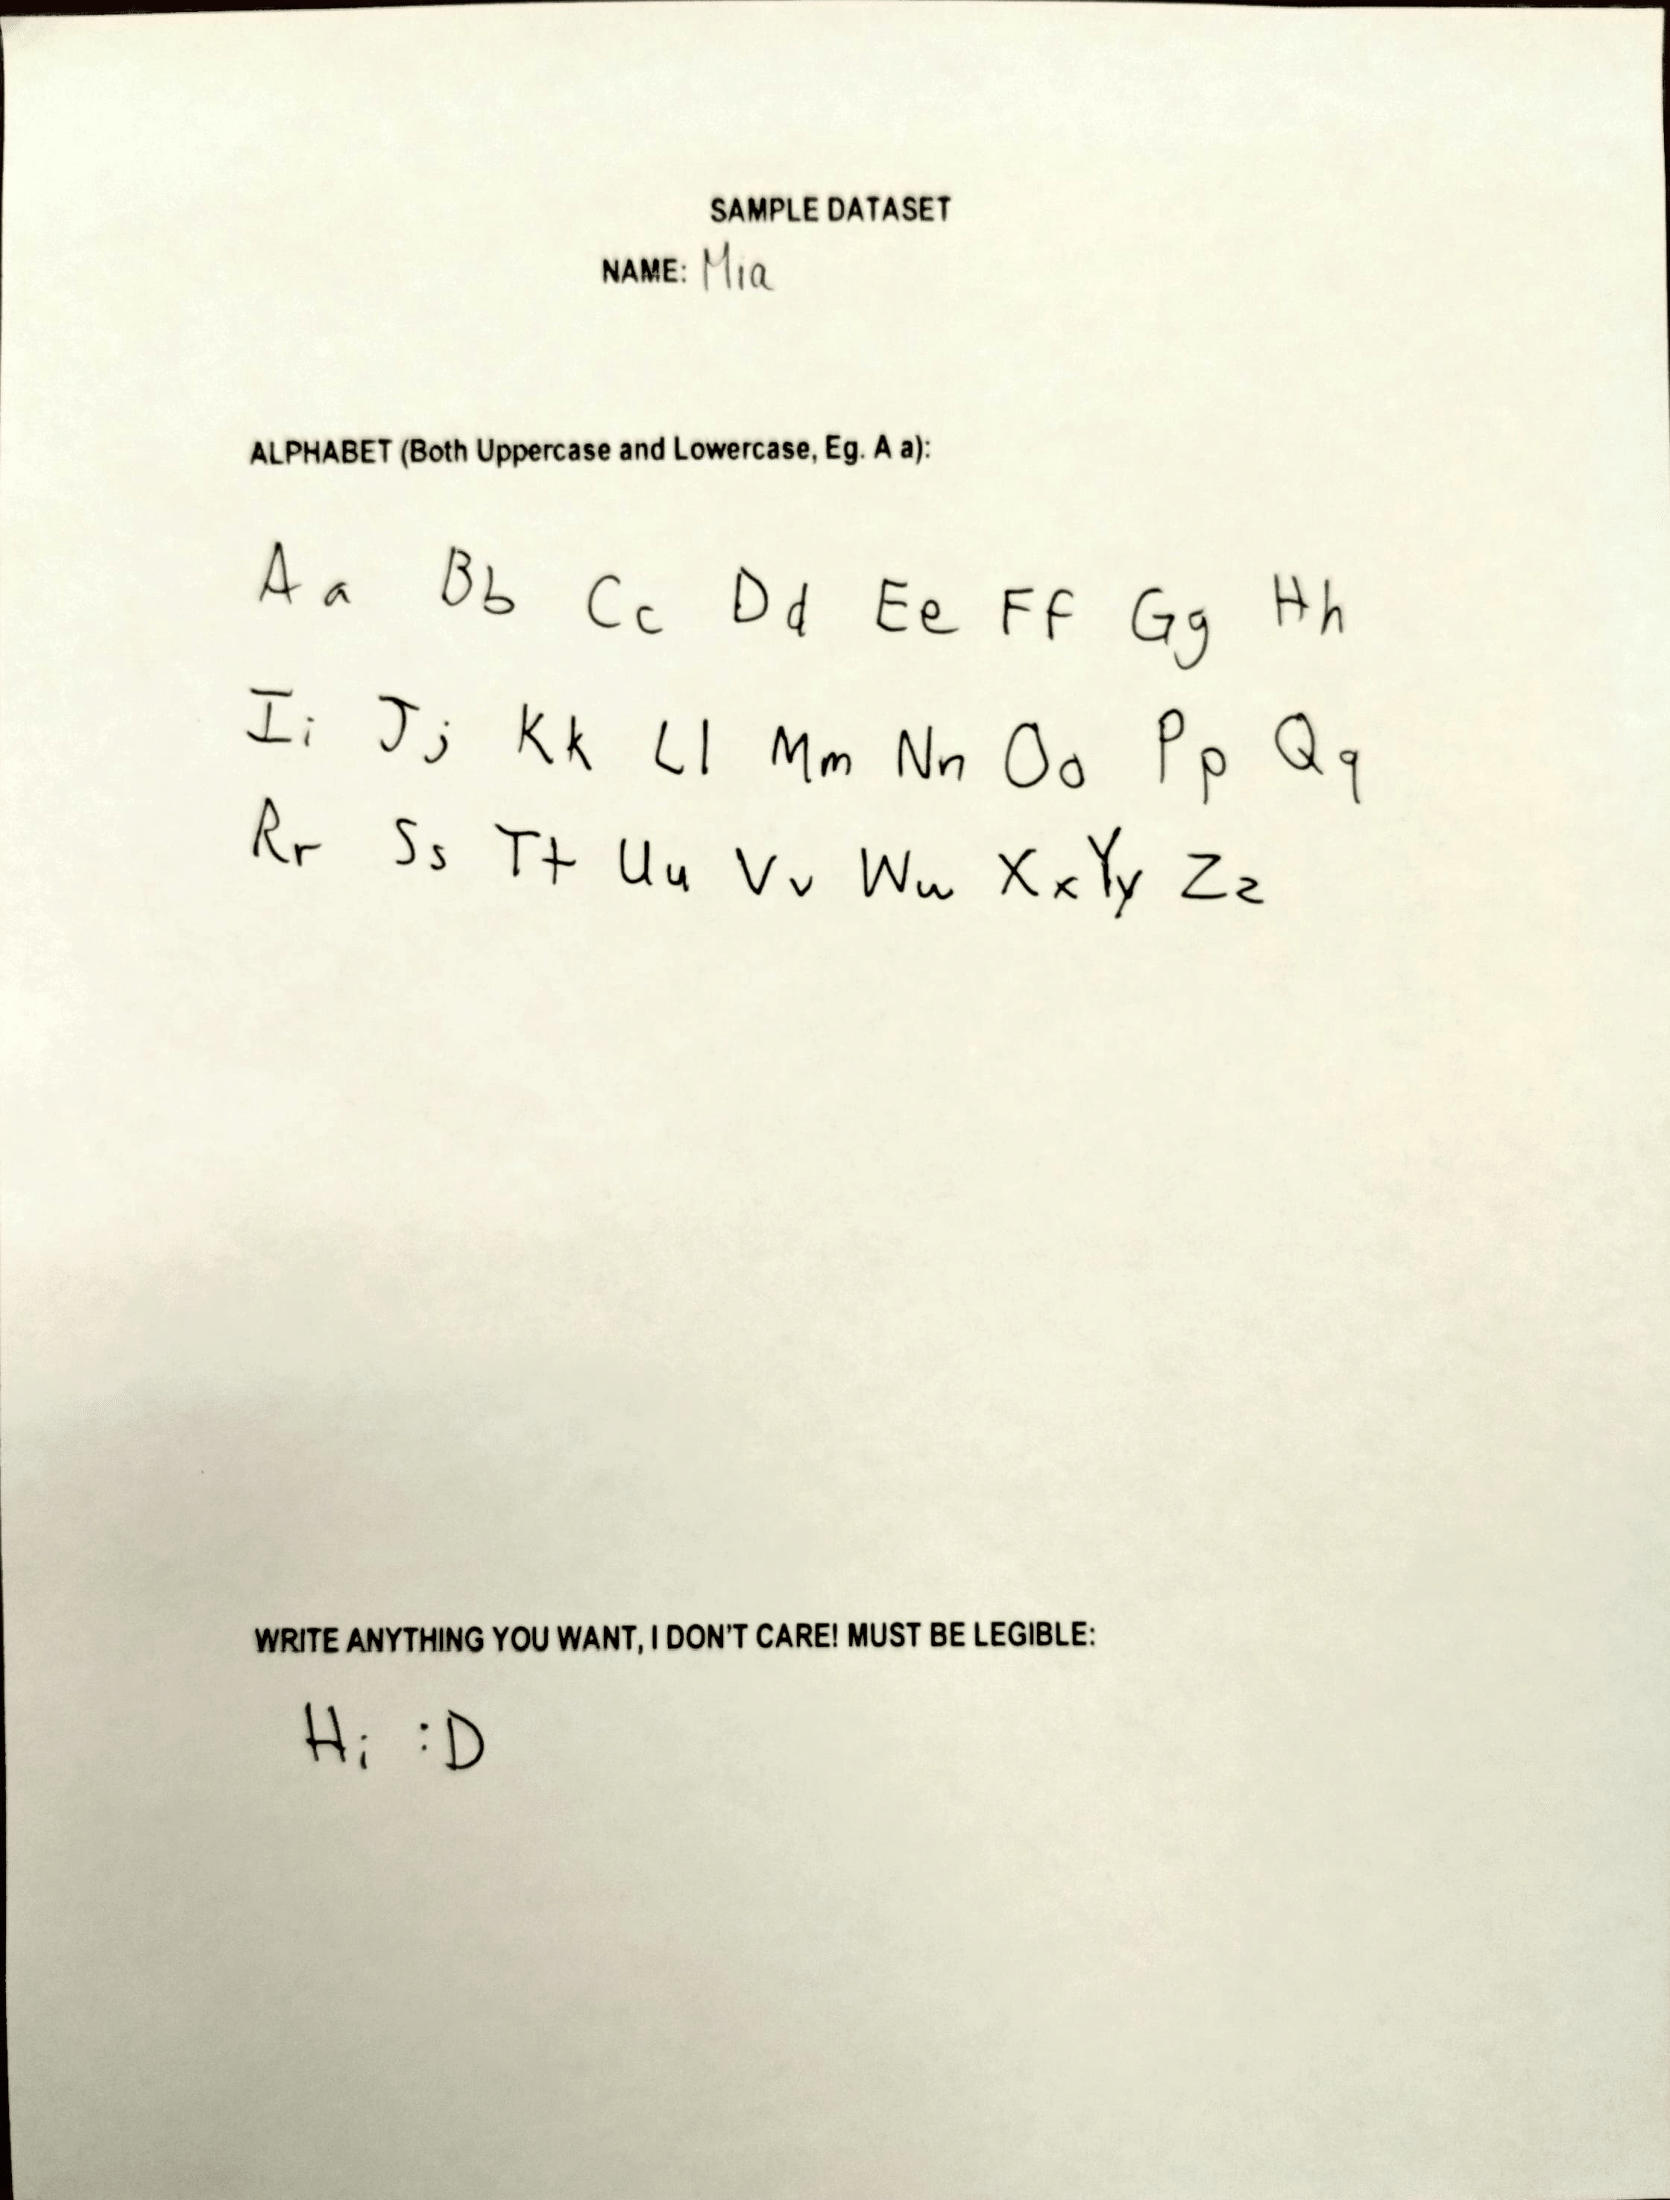 SAMPLE DATASET
NAME: Mia
ALPHABET (Both Uppercase and Lowercase, Eg. A a):
A a Bb Cc Dd Ee Ff Gg Hh
Ii Jj Kk Ll Mm Nn Oo Pp Qq
Rr Ss Tt Uu Vv Ww Xx Yy Zz
WRITE ANYTHING YOU WANT, I DON'T CARE! MUST BE LEGIBLE:
Hi :D